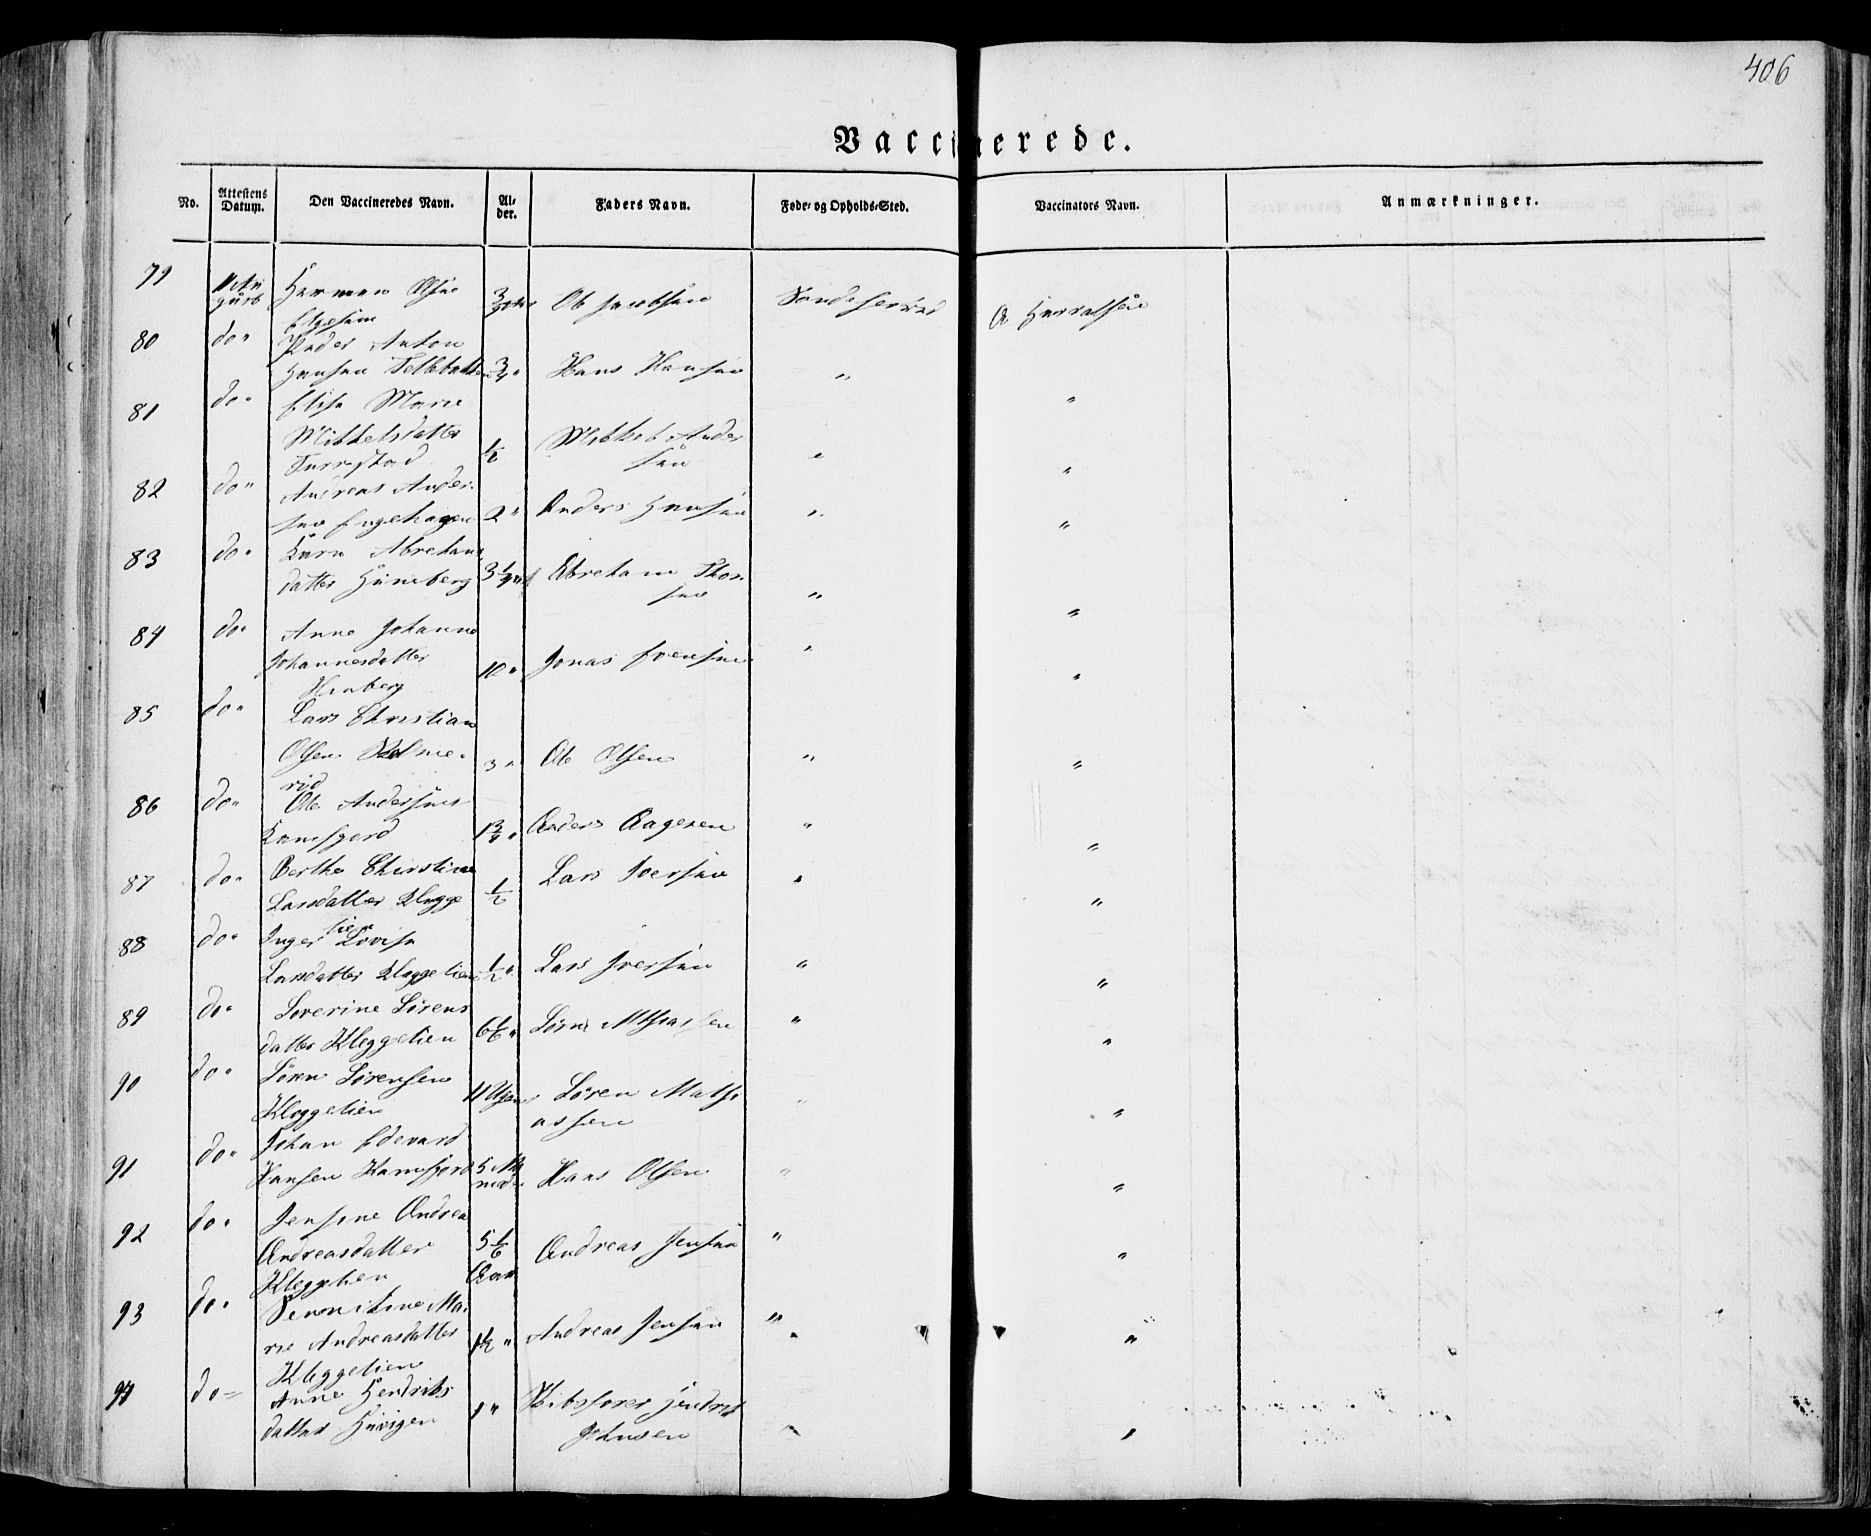 406
Vaccinerede.
No. Attestens Datum. Den Vaccineredes Navn. Al-der. Faders Navn. Føde- og Opholds-Sted. Vaccinators Navn. Anmærkninger.
79 Herman Olsen Ole Jacobsen Sandeherred
80 do " Peder Anton
Hansen 3/4 " Hans Hansen "
81 do " Elisa Marie "
Mikkelsdatter 1/2 Mikkel Ander
sen "
82 do " Andreas Ander- "
sen Engehagen 2 " Anders Hansen " "
83 do " Karn Abraham
datter Haneberg 3 Abraham Thor
sen " "
84 do " Anne Johanne "
Johannesdatter 10 " Jonas Evensen "
Haneberg
85 do " Lars Christian
Olsen 3 " Ole Olsen " "
86 do " Ole Andersen
Kamfjord 1 3/4 " Anders Aagesen " "
87 do " Berthe Christine
Larsdatter Klegge 1/2 Lars Iversen " "
tien
88 do " Inger Lovise
Larsdatter Kleggetien 1/2 " Lars Iversen " "
89 do " Severine Sørens
datter Kleggetien 6 1/6 " Sørn Mthiassen " "
90 do " Søren Sørensen
Kleggetien 11 Uger Søren Mathi " "
assen
91 do " Johan Edevard
Hansen Kamfjord 5 Hans Olsen " "
92 do " Jensine Andrea
Andreasdatter 5 1/6 Andreas Jensen " "
Aar
93 do " Ma-
rie Andreasdatter 1 1/2 " Andreas Jensen " "
Kleggetien
94 do " Anne Hendriks
datter 1 " Skibsfører Hendrik "
Johnsen "